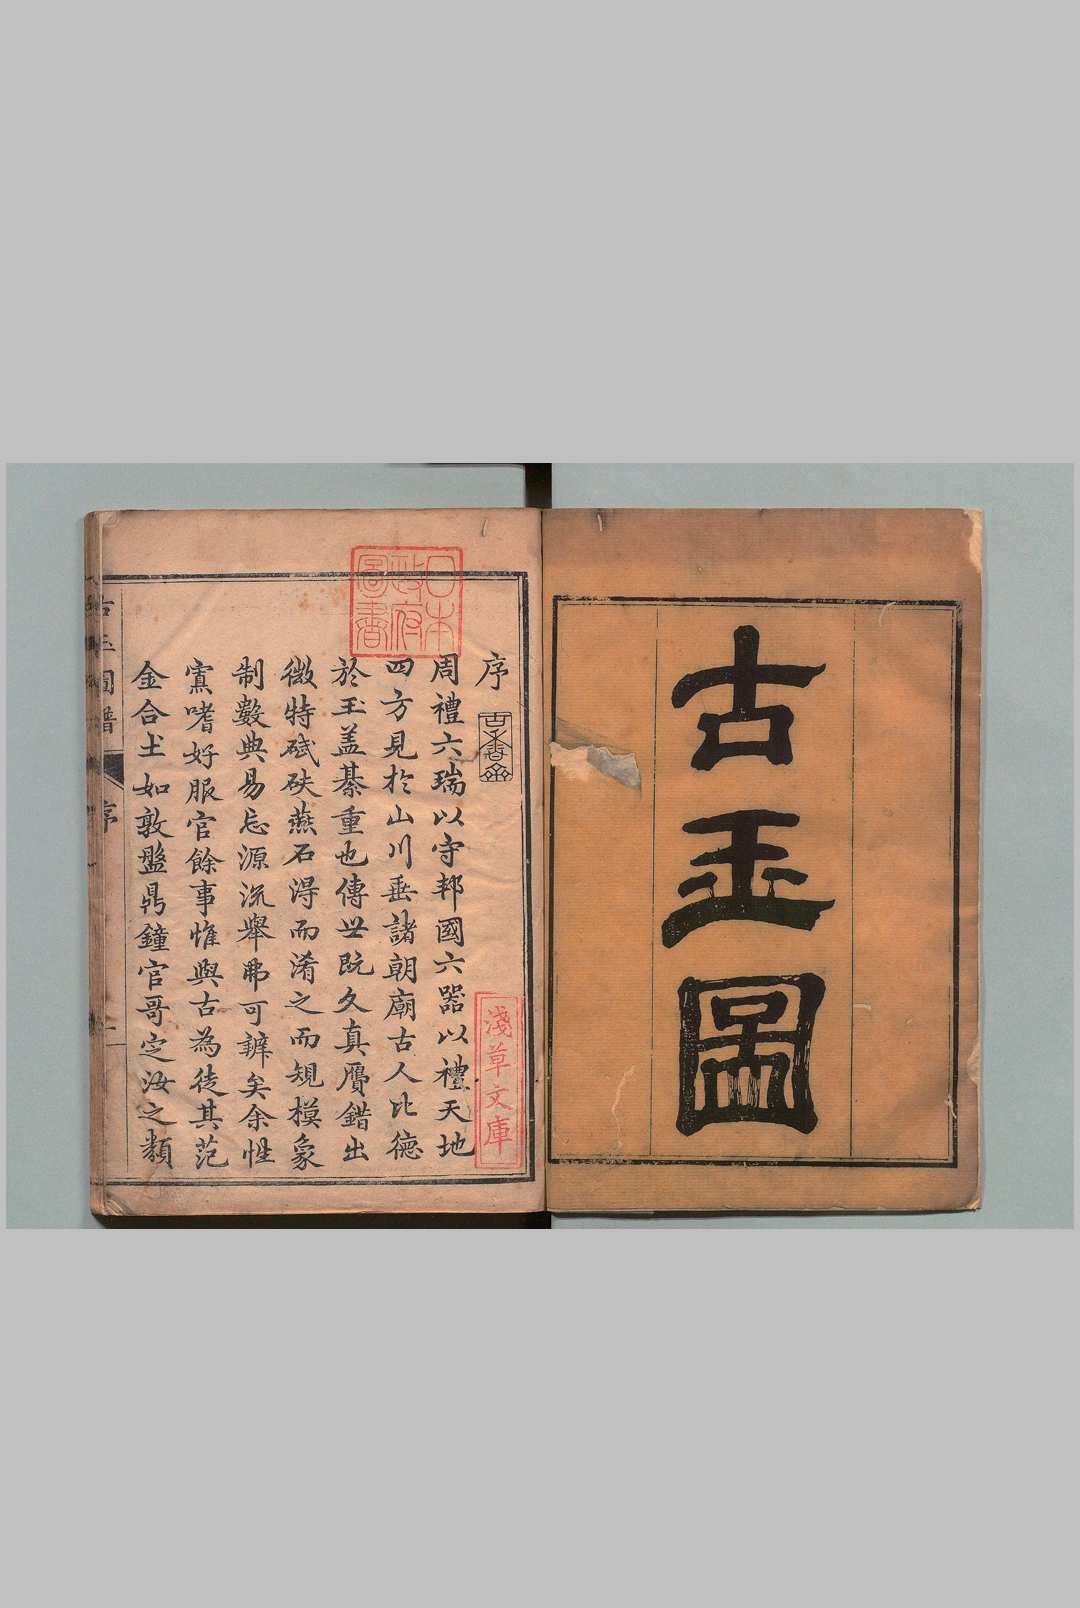 古玉圖
序
周禮六瑞以守邦國六器以禮天地
四方見於山川垂諸朝廟古人比德
於玉盖綦重也傳世既久真贋錯出
微特碔砆燕石淂而淆之而規模象
制數典易忘源流舉弗可辧矣余性
寡嗜好服官餘事惟與古為徒其范
金合土如敦盤鼎鐘官哥定汝之類
古玉圖譜
序
日本
政府
圖書
淺草文庫